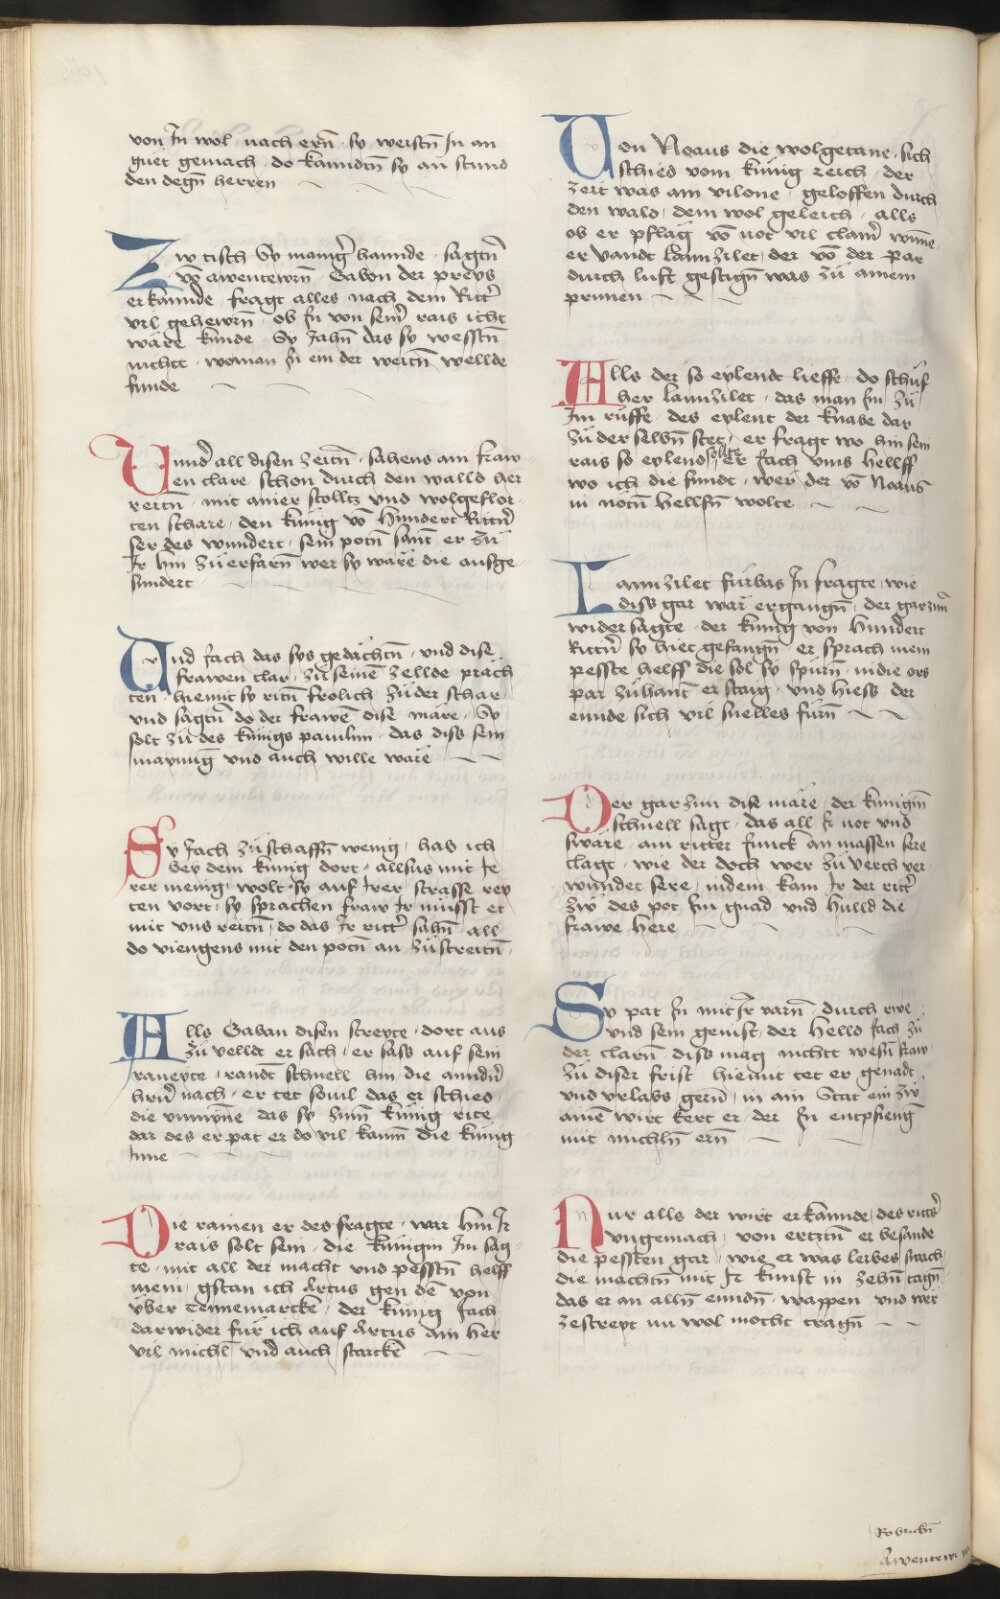 von Jn wol nach ern̄ sy weistn̄ Jn an
guet gemach · do kanndtn̄ sy an stund
den degn̄ herren
Zw tisch Sy manigr̄ hannde · sagtn̄
vō awentewrn̄ Gabon der preys
erkannde · fragt alles nach dem Rittr̄
vil gehewrn̄ · ob Jn von seinr̄ rais icht
wäre kunde · Sy Jahn̄ das sy wesstn̄
nichtt · woman Jn ein der weitn̄ wellde
funde
Unndr̄ all disen zeitn̄ · sahens am fraw
en clare schon durch den walld her
reitn̄ · mit anier stolltz vnd wolgeflor
ten schare · den kunig vō Hundert Rittrn̄
ser des wundert · sein potn̄ sant er zu
Jr hin zuerfarn̄ wer sy wäre die ausge
sundert
Und Jach das sys gedächtn̄ · vnd dise
frawen clar · zu seinē zellde präch
ten · hiemit sy ritn̄ frolich zu der schar
vnd sagtn̄ do der frawē dise märe · Sy
solt zu des kunigs paulun · das diss sein
maynung vnd auch wille wäre
Sy Jach zuschaffn̄ wenig · hab ich
bey dem kunig dort · allsus mit Je
rer menig · wolt sy auf Jrer strasse rey
ten vort · sy sprachen fraw Jr müsst et
mit vns reitn̄ · do das Jr rittr̄ sahn̄ · all
do viengens mit den potn̄ an zustreitn̄ ·
Alls Gaban disen streyte · dort aus
zu velldt er sach · er sass auf sein
raneyte · randt schnell hin die anndrn̄
hrn̄ nach · er tet souil das er schied
die vnnynne das sy zum kunig rite
dar des er pat er do vil kaum̄ die kunig
Jnne
Die rainen er des fragte · war hin Jr
rais solt sein · die kunigin Jm sag
te · mit all der macht vnd pesstn̄ helff
mein · gstan ich Artus gen dē von
vber Tennemarcke · der kunig Jach
darwider für ich auf Artus ain her
vil michl vnd auch starcke
Von Noaus die wolgetane · sich
schied vom kunig reich · der
zeit was am vilone · geloffen durch
den wald · dem wol geleich · alls
ob er pflag vō not vil clamr̄ wune
er vandt lannzilet · der vō der par
durch luft gestign̄ was zu ainem
prunen
Alls der so eylendt lieffe · do schuf
her lannzilet · das man Jm zu
Jm rüffe · des eylent der knabe dar
zu der selbn̄ stet · er fragt wo hin sein
rais so eylend solte er Jach vmb hellff
wo ich die fundt · wer der vō Noaus
in nötn̄ hellfn̄ wolte
Lannzilet fürbas Jn fragte · wie
diss gar wär ergangn̄ · der garzun
wider sagte · der kunig von Hundert
Rittrn̄ sy hiet gefangn̄ · er sprach mein
pesste helff die sol sy spürn̄ · in die ors
par zuhant er staig · vnd hiess der
ennde sich vil snelles fürn̄
Der garzun dise märe · der kunigin
schnell sagt · das all Jr not vnd
swäre · am ritter Junck an massen sere
clagt · wie der doch wer zu verch ver
wundet sere · indem kam Jr der rittr̄
zw des pot Jm gnad vnd hulld die
frawe here
Sy pat Jn mit Jr varn̄ · durch rwe
vnd sein genist · der Helld Jach zu
der clarn̄ diss mag nichtt wesn̄ fraw
zu diser frist · hiemit tet er genadt
vnd vrlabs gern̄ · in ain Stat ein zw
ainē wirt kert er · der Jn entpfieng
mit michln̄ ern̄
Nur alls der wirt erkannde · des rittr̄s
vngemach · von ertztn̄ er besande
die pessten gar · wie er was leibes swach
die machtn̄ mit Jr kunst in zehn̄ tagn̄
das er an alln̄ enndn̄ · wappen vnd wer
zestreyt nu wol mocht tragn̄